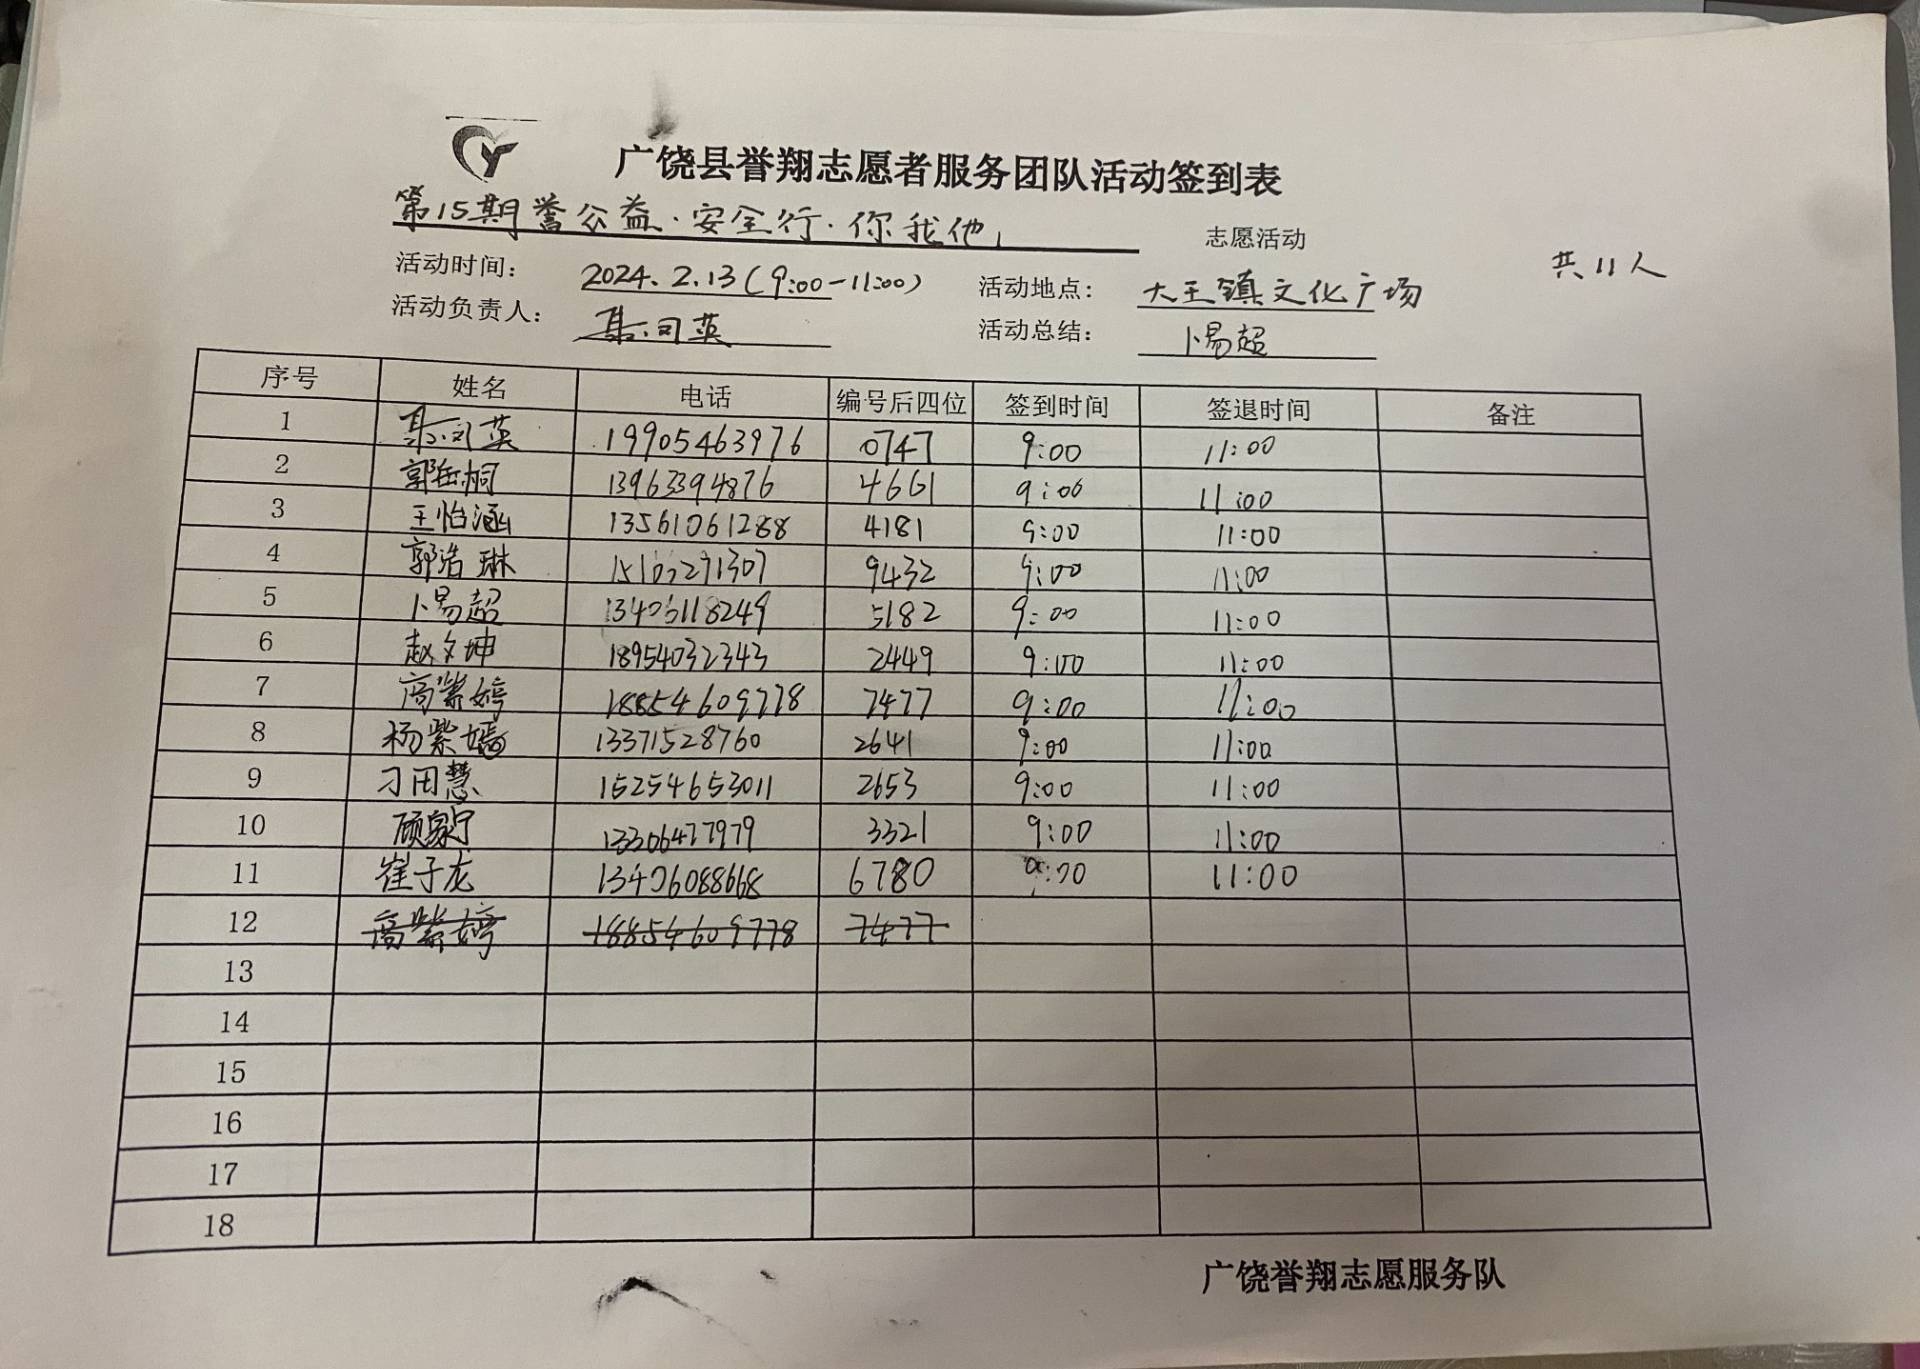 广饶县誉翔志愿者服务团队活动签到表
第15期誉公益·安全行·你我他 志愿活动
共11人
活动时间： 2024.2.13(9:00-11:00) 活动地点： 大王镇文化广场
活动负责人： 英 活动总结： 卜易超
序号 姓名 电话 编号后四位 签到时间 签退时间 备注
1 英 19905463976 0747 9:00 11:00
2 郭岳桐 13963394876 4661 9:00 11:00
3 王怡涵 13561061288 4181 9:00 11:00
4 郭浩琳 9432 9:00 11:00
5 卜易超 5182 9:00 11:00
6 赵文坤 18954032343 2449 9:00 11:00
7 高紫婷 18854609778 7477 9:00 11:00
8 杨紫嫣 13371528760 2641 9:00 11:00
9 刁田慧 15254653011 2653 9:00 11:00
10 顾家宁 13306477979 3321 9:00 11:00
11 崔子龙 13406088668 6780 9:00 11:00
12 高紫婷 18854609778 7477
13
14
15
16
17
18
广饶誉翔志愿服务队